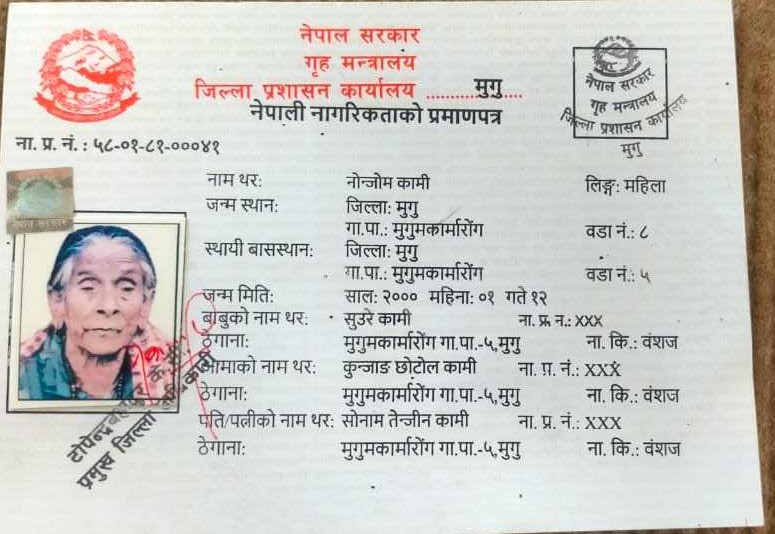 नेपाल सरकार
गृह मन्त्रालय
जिल्ला प्रशासन कार्यालय ..............मुगु.....
नेपाली नागरिकताको प्रमाणपत्र
नेपाल सरकार
गृह मन्त्रालय
जिल्ला प्रशासन कार्यालय
मुगु
ना. प्र. नं. : ५८-०१-८१-०००४१
नाम थर: नोन्जोम कामी लिङ्ग: महिला
जन्म स्थान: जिल्ला: मुगु
गा.पा.: मुगुमकार्मारोंग वडा नं.: ८
स्थायी बासस्थान: जिल्ला: मुगु
गा.पा.: मुगुमकार्मारोंग वडा नं.: ५
जन्म मिति: साल: २००० महिना: ०१ गते १२
बाबुको नाम थर: सुउरे कामी ना. प्र. नं.: XXX
ठेगाना: मुगुमकार्मारोंग गा.पा.-५,मुगु ना. कि.: वंशज
आमाको नाम थर: कुन्जाङ छोटोल कामी ना. प्र. नं.: XXX
ठेगाना: मुगुमकार्मारोंग गा.पा.-५,मुगु ना. कि.: वंशज
पति/पत्नीको नाम थर: सोनाम तेन्जीन कामी ना. प्र. नं.: XXX
ठेगाना: मुगुमकार्मारोंग गा.पा.-५,मुगु ना. कि.: वंशज
प्रमुख जिल्ला अधिकारी